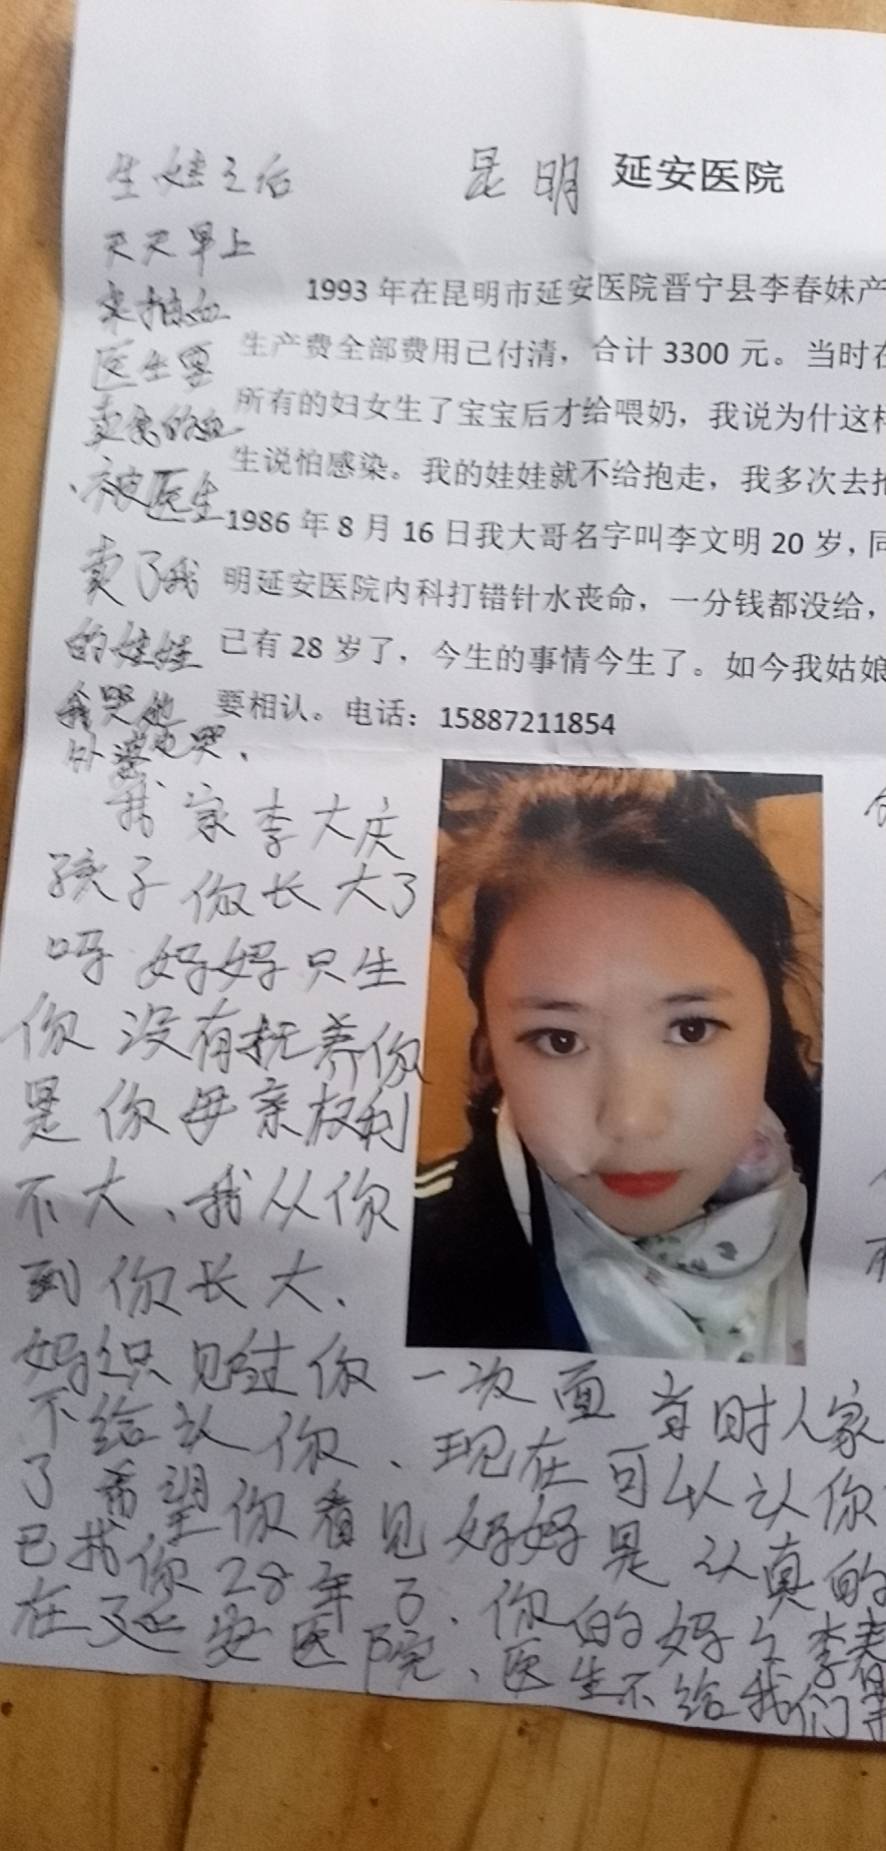 昆明 延安医院
1993 年在昆明市延安医院晋宁县李春妹产
生产费全部费用已付清，合计 3300 元。当时在
所有的妇女生了宝宝后才给喂奶，我说为什这样
生说怕感染。我的娃娃就不给抱走，我多次去抱
1986 年 8 月 16 日我大哥名字叫李文明 20 岁，同
明延安医院内科打错针水丧命，一分钱都没给，
已有 28 岁了，今生的事情今生了。如今我姑娘
要相认。电话：15887211854
生娃之后
天天早上
来抽血
医生要
卖我的血
、被医生
卖了我
的娃娃
我哭他
外婆也哭、
我家李大庆
孩子你长大了
吗妈妈只生
你没有抚养你
是你母亲权利
不大、我从你
到你长大、
妈么只见过你一次面当时人家
不给认你、现在可以认你
了希望你看见妈妈是认真的
已找你28年了、你的妈么李春
在延安医院、医生不给我们